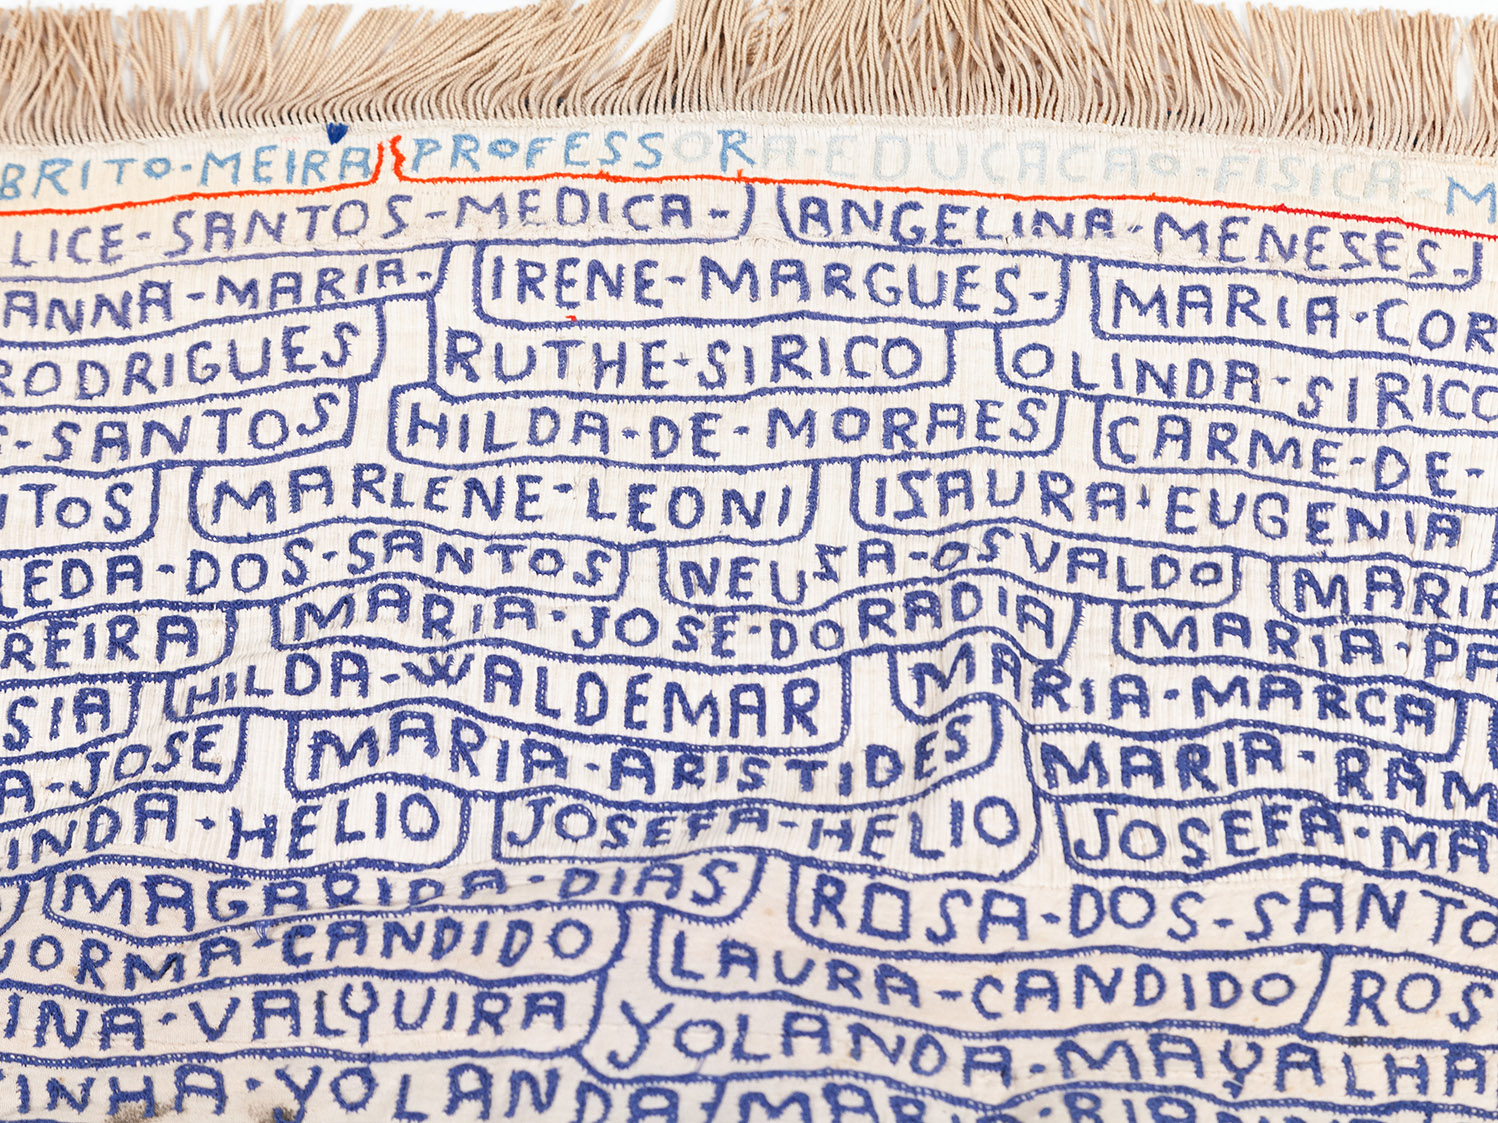 BRITO-MEIRA PROFESSORA-EDUCACAO-FISICA-M
LICE-SANTOS-MEDICA- ANGELINA-MENESES-
ANNA-MARIA- IRENE-MARGUES- MARIA-COR
RODRIGUES RUTHE-SIRICO OLINDA-SIRICO
S-SANTOS HILDA-DE-MORAES CARME-DE-
ITOS MARLENE-LEONI ISAURA-EUGENIA
LEDA-DOS-SANTOS NEUSA-OSVALDO MARIA
REIRA MARIA-JOSE-DORADIA MARIA-PA
SIA HILDA-WALDEMAR MARIA-MARCA
A-JOSE MARIA-ARISTIDES MARIA-RAM
INDA-HELIO JOSEFA-HELIO JOSEFA-MA
MAGARIDA-DIAS ROSA-DOS-SANTO
NORMA-CANDIDO LAURA-CANDIDO ROS
INA-VALQUIRA YOLANDA-MAYALHA
INHA-YOLANDA MARIA-